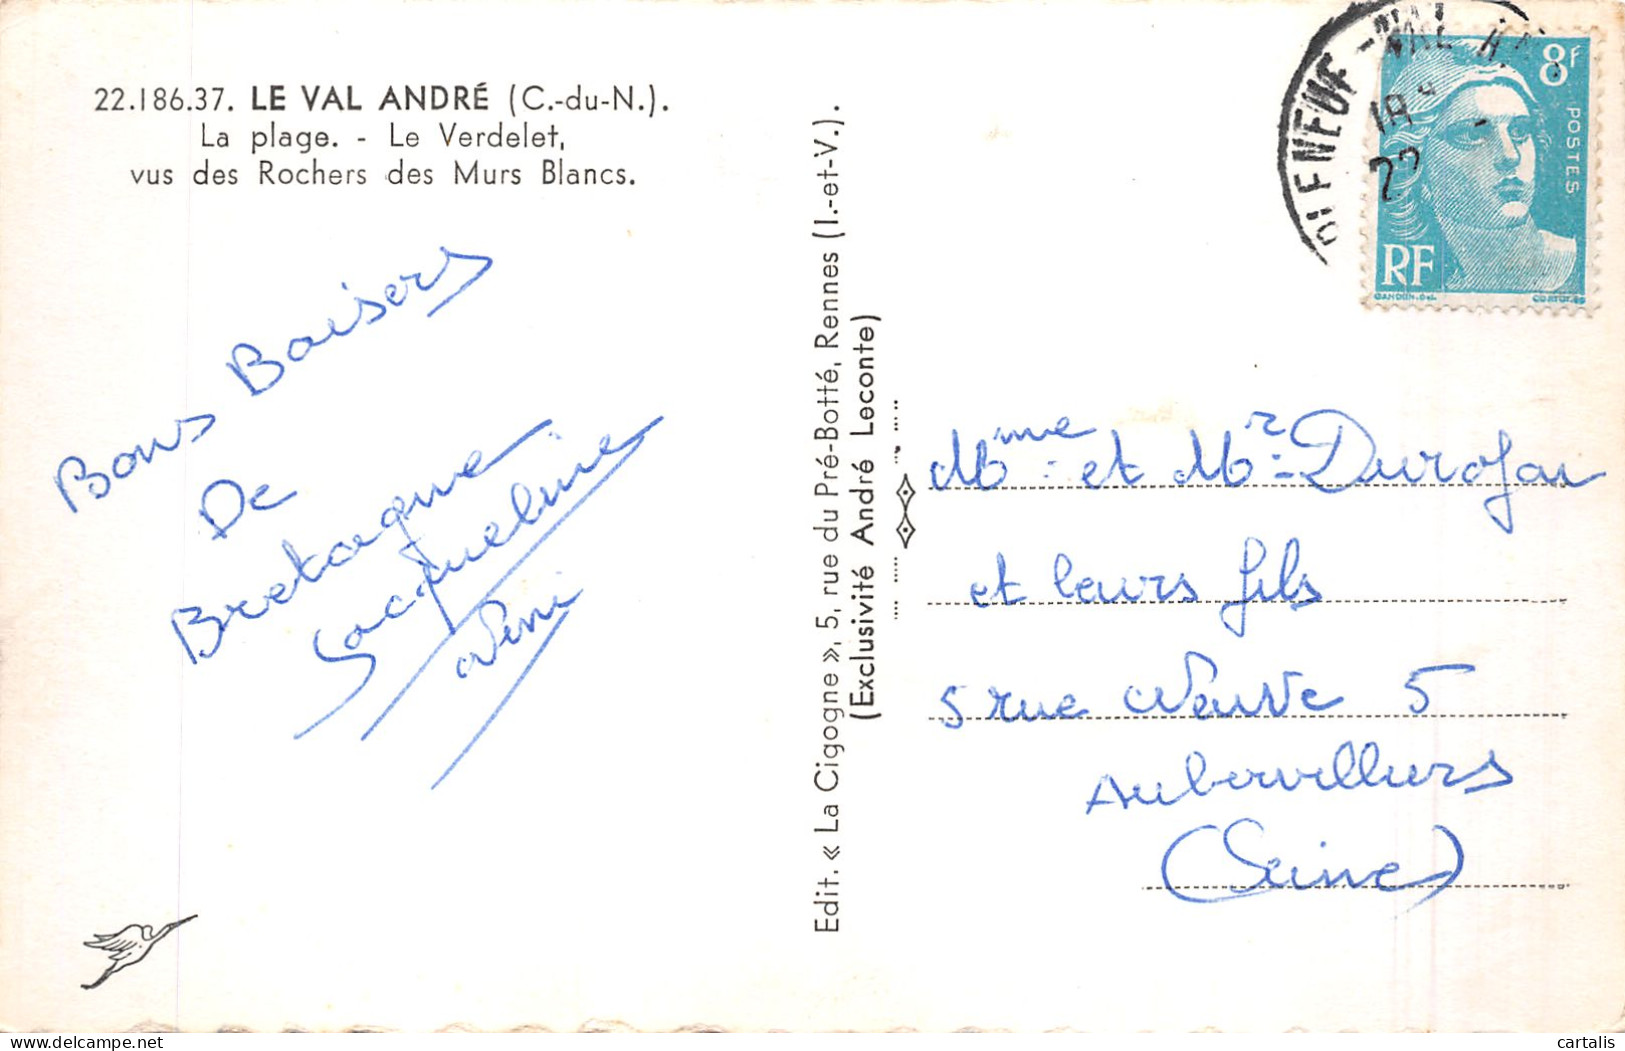 22.186.37. LE VAL ANDRÉ (C.-du-N.).
La plage. - Le Verdelet,
vus des Rochers des Murs Blancs.
Bons Baisers
De
Bretagne
Jacqueline
Edit. « La Cigogne », 5, rue du Pré-Botté, Rennes (I.-et-V.).
(Exclusivité André Leconte)
PLENEUF-VAL-AN
18
22
8F
POSTES
RF
GANDON.Del.
Mme et Mr Durofau
et leurs fils
5 rue Neuve 5
Aubervilliers
(Seine)
delcampe.net
cartalis